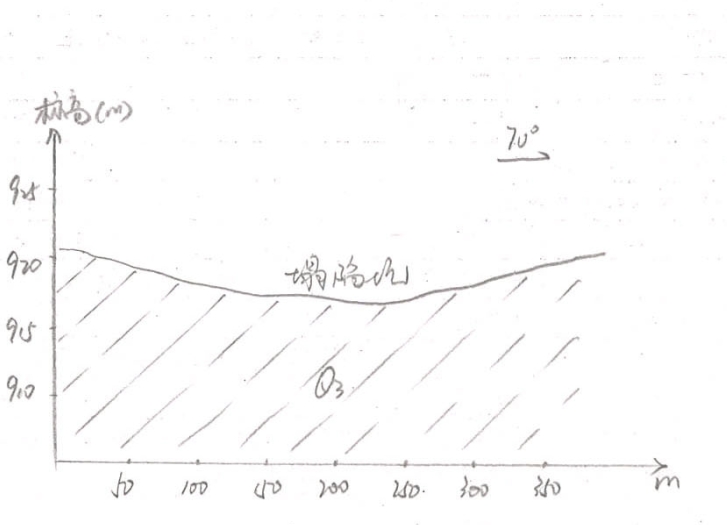 标高(m)
70°
925
920
塌陷坑
915
910
Q3
50 100 150 200 250 300 350 m